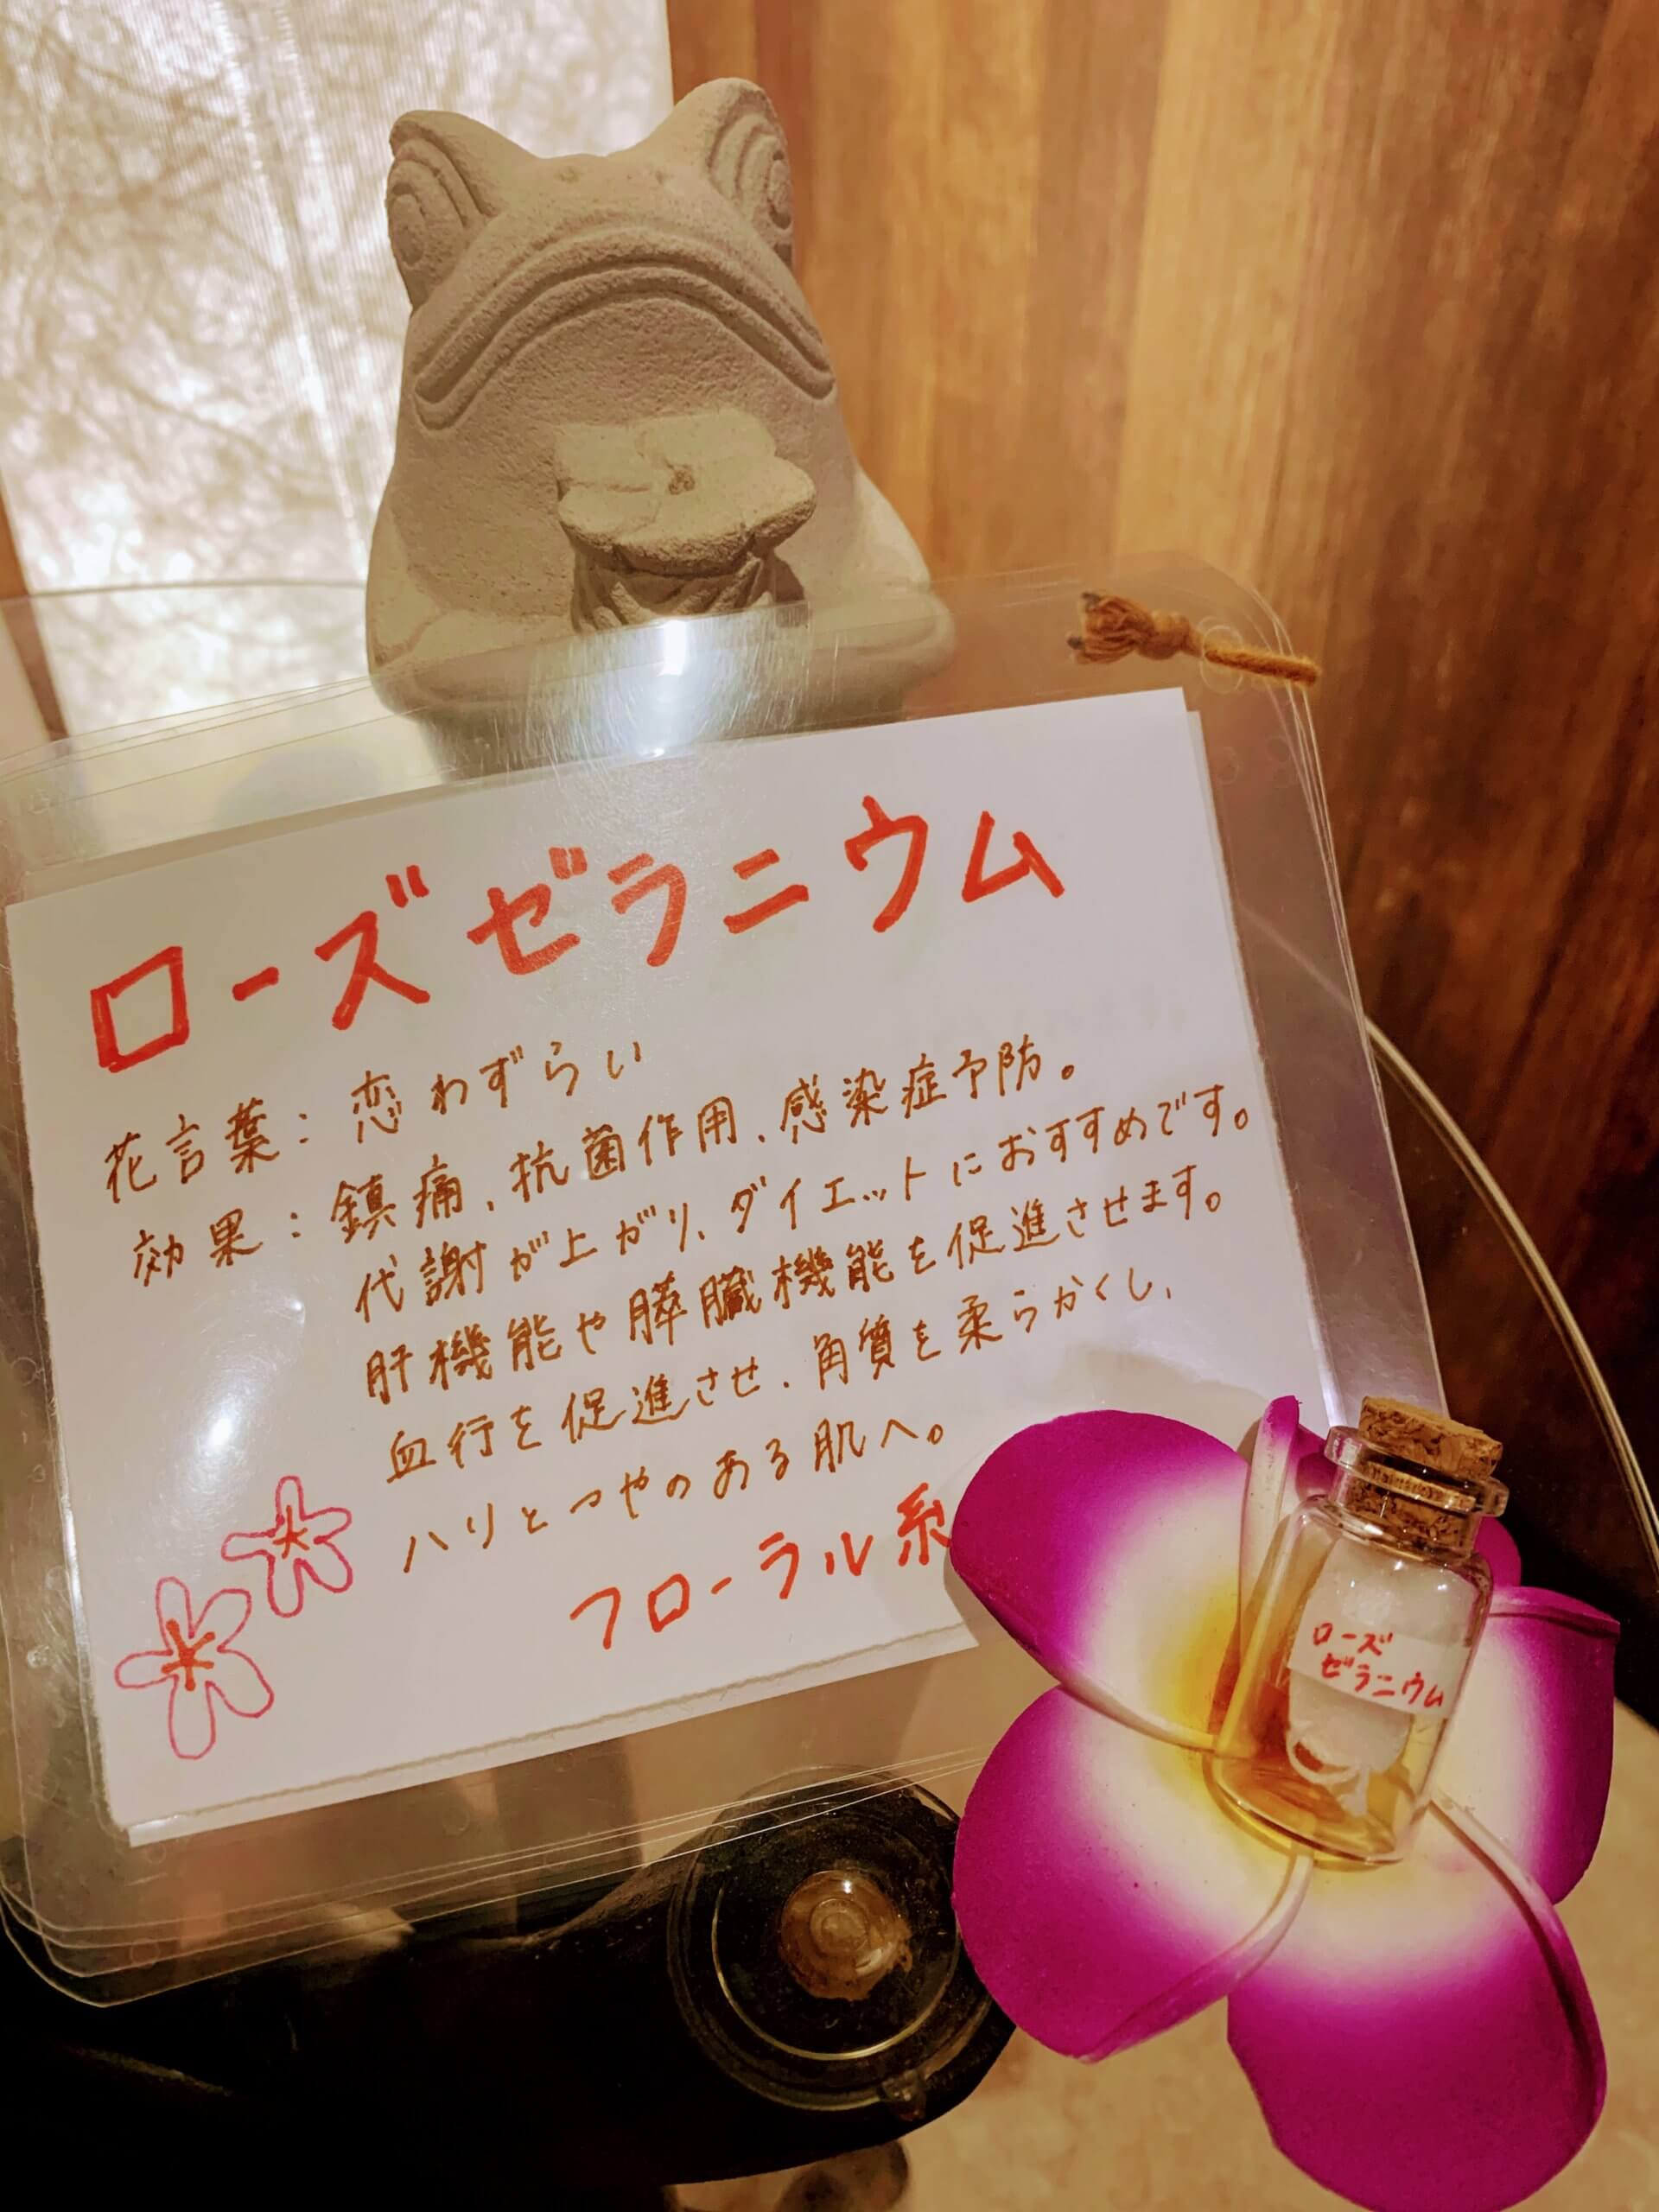 ローズゼラニウム
花言葉：恋わずらい
効果：鎮痛、抗菌作用、感染症予防。
代謝が上がり、ダイエットにおすすめです。
肝機能や膵臓機能を促進させます。
血行を促進させ、角質を柔らかくし、
ハリとつやのある肌へ。
フローラル系
ローズ
ゼラニウム